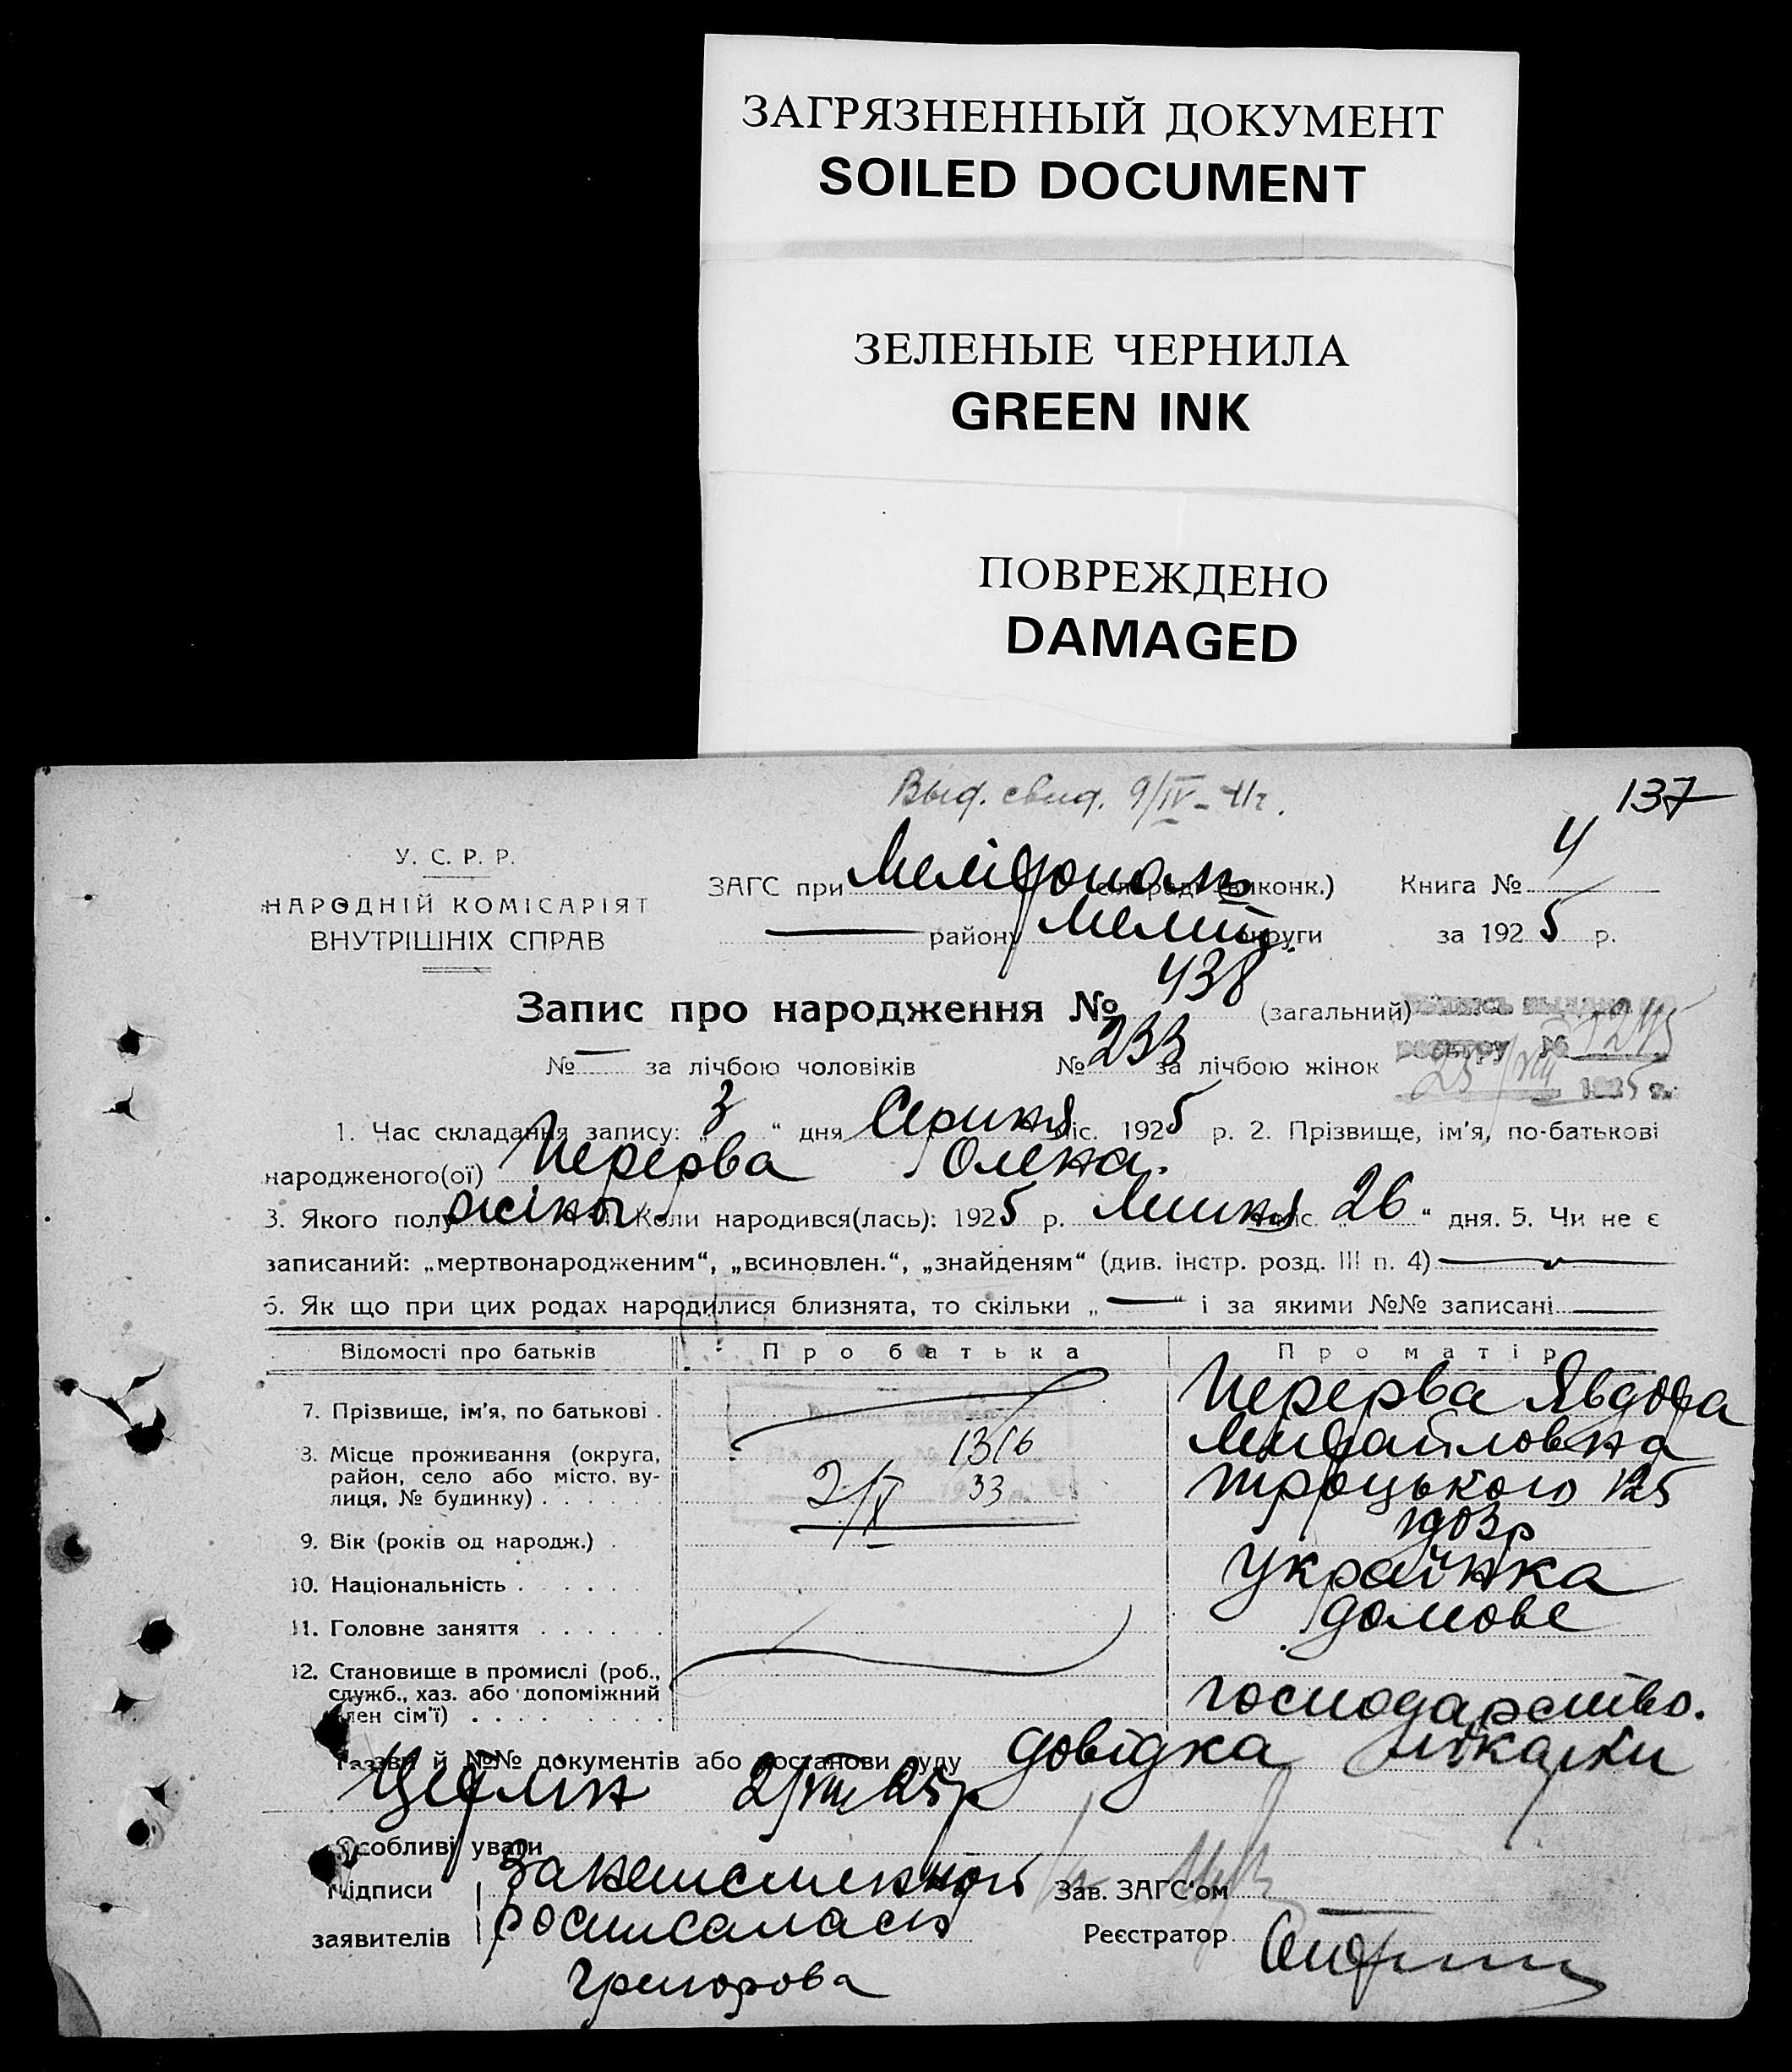 ЗАГРЯЗНЕННЫЙ ДОКУМЕНТ
SOILED DOCUMENT
ЗЕЛЕНЫЕ ЧЕРНИЛА
GREEN INK
ПОВРЕЖДЕНО
DAMAGED
Выд. свид. 9/IV-41г.
137
У. С. Р. Р.
НАРОДНІЙ КОМІСАРІЯТ
ВНУТРІШНІХ СПРАВ
ЗАГС при Мелітополь (виконк.) Книга № 4
району Меліт. округи за 1925 р.
Запис про народження № 438 (загальний)
№ — за лічбою чоловіків № 233 за лічбою жінок
1925 г.
1. Час складання запису: „3“ дня Серпня міс. 1925 р. 2. Прізвище, ім'я, по-батькові
народженого(ої) Перерва Олена.
3. Якого полу жіночі Коли народився(лась): 1925 р. Липня міс. „26“ дня. 5. Чи не є
записаний: „мертвонародженим“, „всиновлен.“, „знайденям“ (див. інстр. розд. III п. 4) —
6. Як що при цих родах народилися близнята, то скільки „—“ і за якими №№ записані —
Відомості про батьків Про батька Про матір
7. Прізвище, ім'я, по батькові . Перерва Явдоха
Михайловна
8. Місце проживання (округа, 1316
район, село або місто, ву- 2/X 33 Троцького 125
лиця, № будинку) . . . . . .
9. Вік (років од народж.) .
10. Національність . . . . . . Українка
11. Головне заняття . . . . . . домове
12. Становище в промислі (роб.,
служб., хаз. або допоміжний господарство.
член сім'ї) . . . . . . . . .
Назви й №№ документів або постанови суду довідка лікарки
2/VIII 25р
Особливі уваги
Підписи За неписьменною Зав. ЗАГС'ом
заявителів росписалась Реєстратор
Григорова